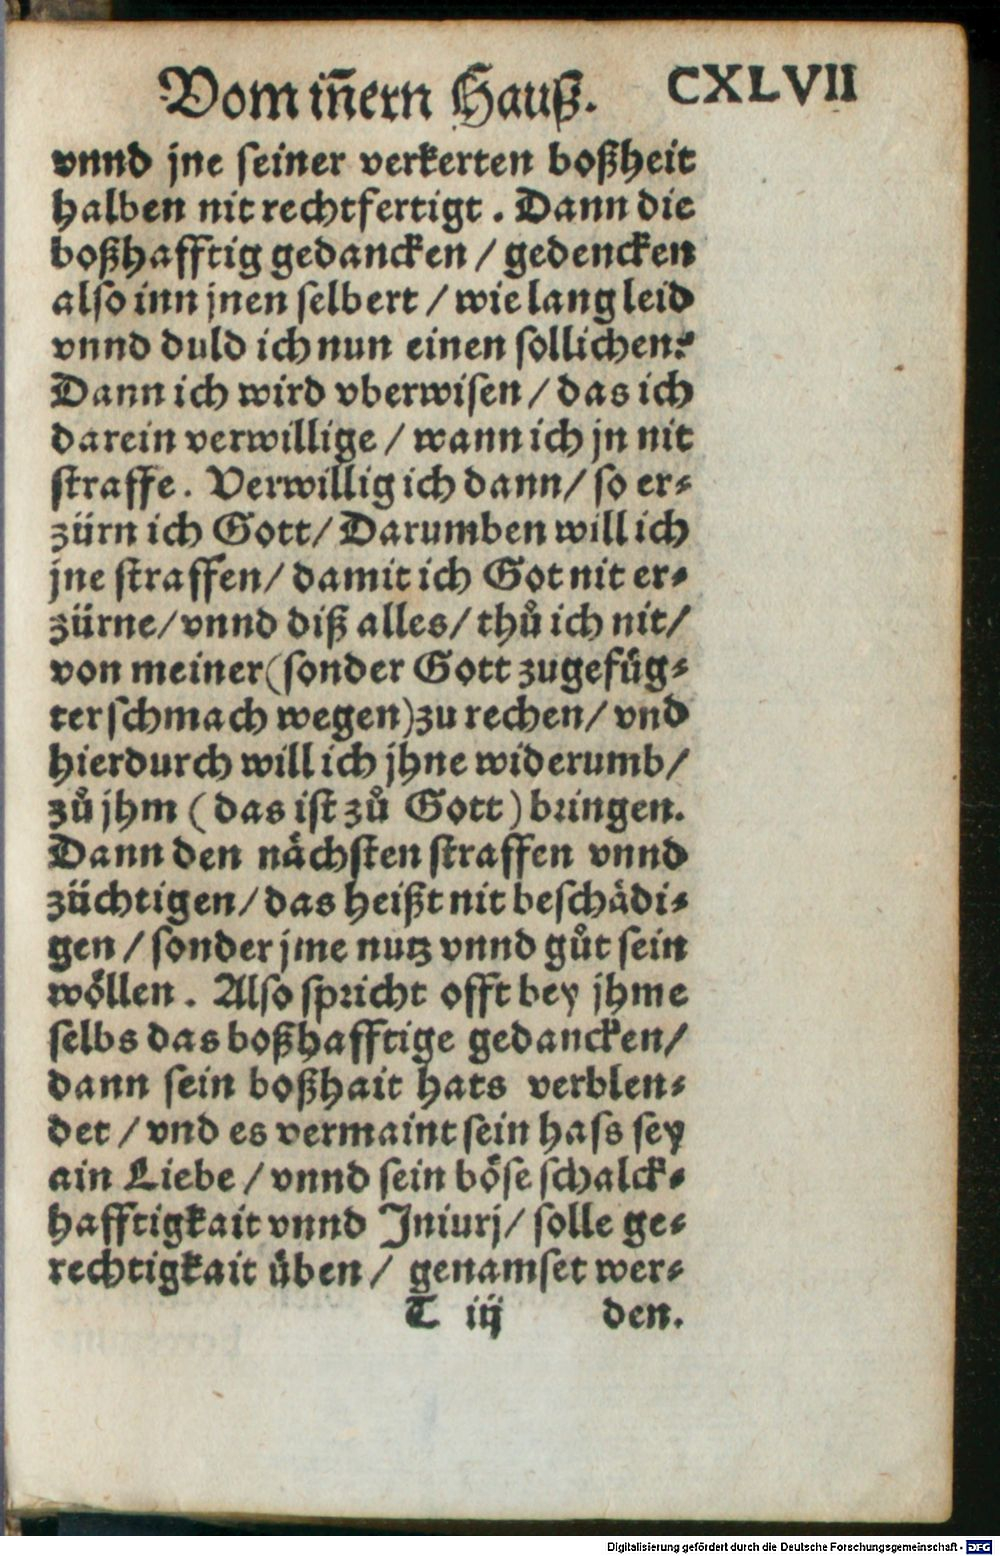 Vom iñern Hauß. CXLVII
vnnd jne seiner verkerten boßheit
halben nit rechtfertigt. Dann die
boßhafftig gedancken / gedencken
also inn jnen selbert / wie lang leid
vnnd duld ich nun einen sollichen?
Dann ich wird vberwisen / das ich
darein verwillige / wann ich jn nit
straffe. Verwillig ich dann / so er-
zürn ich Gott / Darumben will ich
jne straffen / damit ich Got nit er-
zürne / vnnd diß alles / thů ich nit /
von meiner (sonder Gott zugefüg-
ter schmach wegen) zu rechen / vnd
hierdurch will ich jhne widerumb /
zů jhm (das ist zů Gott) bringen.
Dann den nächsten straffen vnnd
züchtigen / das heißt nit beschädi-
gen / sonder jme nutz vnnd gůt sein
wöllen. Also spricht offt bey jhme
selbs das boßhafftige gedancken /
dann sein boßhait hats verblen-
det / vnd es vermaint sein hass sey
ain Liebe / vnnd sein böse schalck-
hafftigkait vnnd Iniurj / solle ge-
rechtigkait üben / genamset wer-
T iij den.
Digitalisierung gefördert durch die Deutsche Forschungsgemeinschaft - DFG